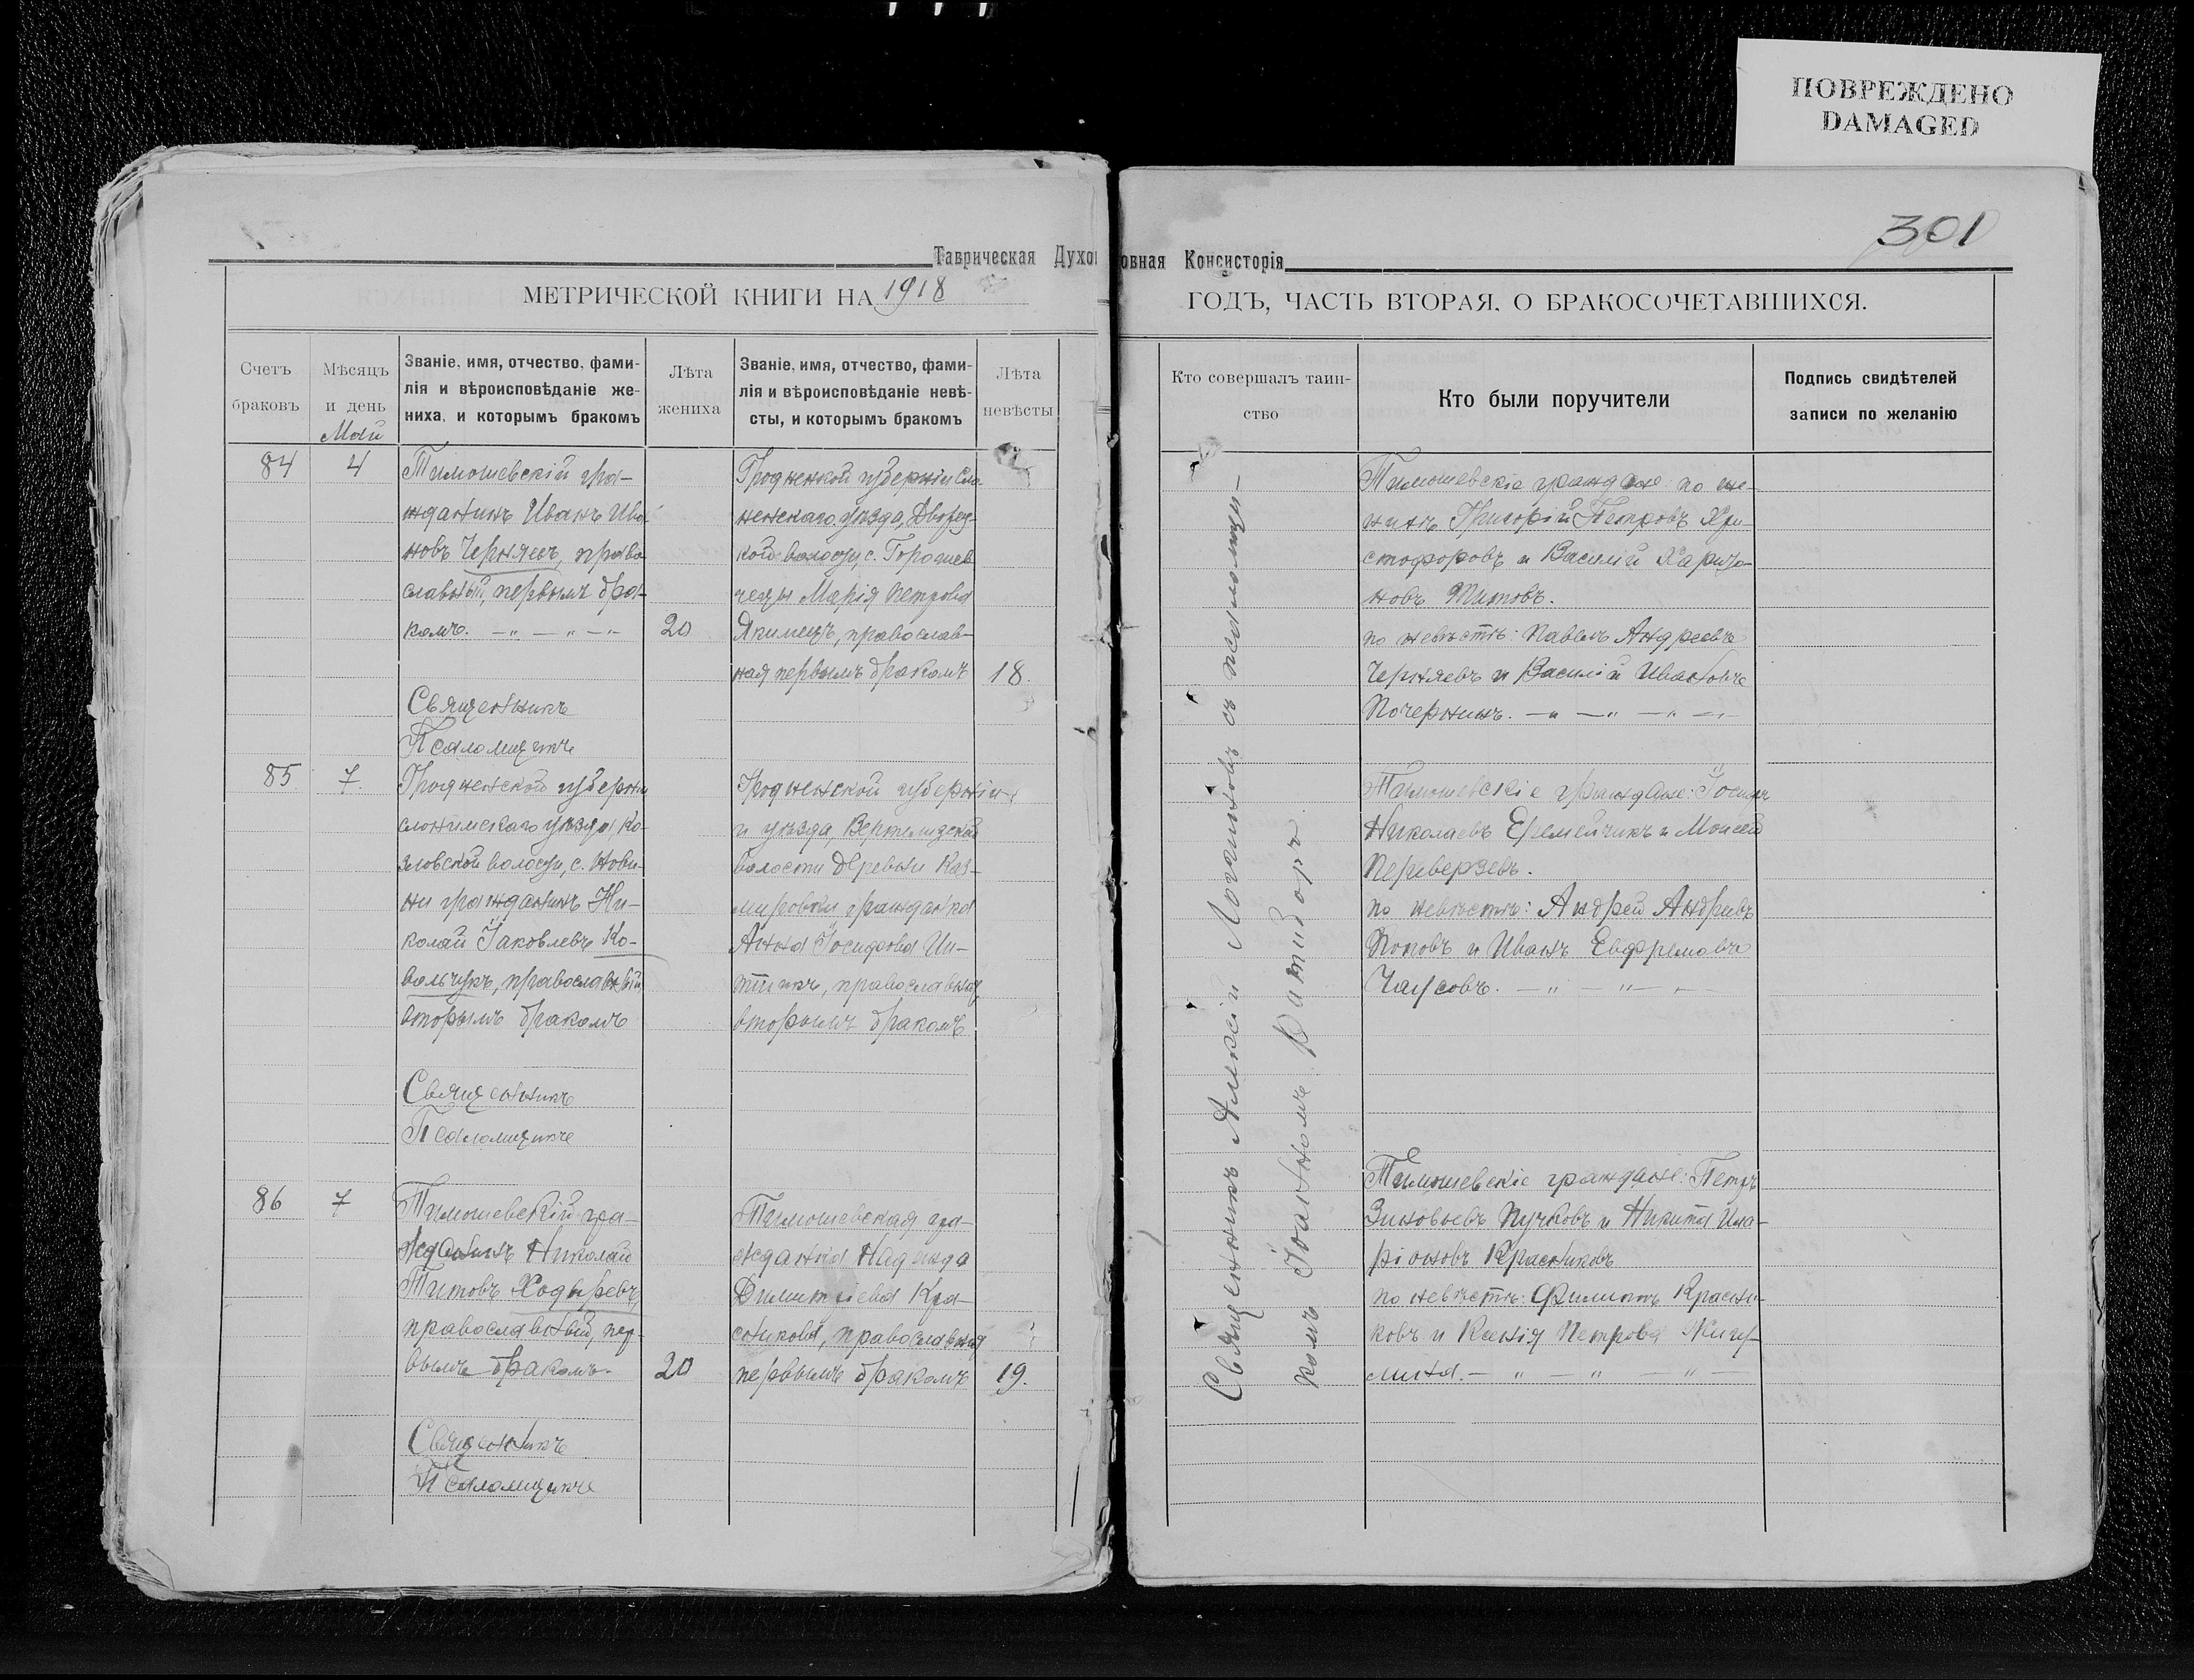 ПОВРЕЖДЕНО
DAMAGED
301
Таврическая Духовная Консисторія
МЕТРИЧЕСКОЙ КНИГИ НА 1918
ГОДЪ, ЧАСТЬ ВТОРАЯ, О БРАКОСОЧЕТАВШИХСЯ.
Счетъ
браковъ
Мѣсяцъ
и день
Май
Званіе, имя, отчество, фами-
лія и вѣроисповѣданіе же-
ниха, и которымъ бракомъ
Лѣта
жениха
Званіе, имя, отчество, фами-
лія и вѣроисповѣданіе невѣ-
сты, и которымъ бракомъ
Лѣта
невѣсты
Кто совершалъ таин-
ство
Кто были поручители
Подпись свидѣтелей
записи по желанію
84
4
Тимошевскій гра-
жданинъ Иванъ Ива
новъ Черняевъ, право
славный, первымъ бра-
комъ. -"-"-"-
20
Гродненкой губерніи Сло
ненскаго уѣзда, Дворец-
кой волости, с.
Марія Петрова
Якимецъ, православ-
ная первымъ бракомъ
18.
Тимошевскіе граждане по же-
нихѣ Григорій Петровъ Хри-
стофоровъ и Василій Харито-
новъ Титовъ.
по невѣстѣ: Павелъ Андреевъ
Черняевъ и Василій Ивановъ
Почернинъ. -"-"-"-"-
Священникъ
Псаломщикъ
85.
7.
Гродненской губерніи
слонимскаго уѣзда Ко-
зловской волости, с. Нови-
ни гражданинъ Ни-
колай Іаковлевъ Ко-
вальчукъ, православный
вторымъ бракомъ
Гродненской губерніи
и уѣзда, Вертелишской
волости деревни Каз-
мировки гражданка
Анна Іосифова
православная
вторымъ бракомъ
Тимошевскіе граждане: Іосифъ
Николаевъ Еремейчикъ и Моисей
Переверзевъ.
по невѣстѣ: Андрей Андреевъ
Поповъ и Иванъ Евфремовъ
Чаусовъ. -"-"-"-
Священникъ
Псаломщикъ
86
7
Тимошевскій гра-
жданинъ Николай
Титовъ Ходыревъ,
православный, пер-
вымъ бракомъ.
20
Тимошевская гра-
жданка Надежда
Димитріева Кра-
сникова, православная
первымъ бракомъ
19.
Тимошевскіе граждане: Петръ
Зиновьевъ Пучковъ и Никита Ила-
ріоновъ Красниковъ
по невѣстѣ: Филиппъ Красни-
ковъ и Ксенія Петрова Жигу-
лина. -"-"-"-
Священникъ
Псаломщикъ
Священникъ Алексій Логгиновъ съ псаломщи-
комъ Іоанномъ